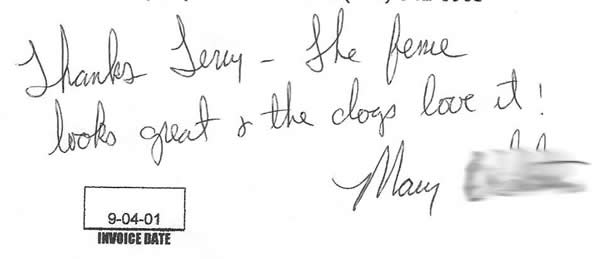 Thanks Terry - The fence
looks great & the dogs love it!
Mary
9-04-01
INVOICE DATE